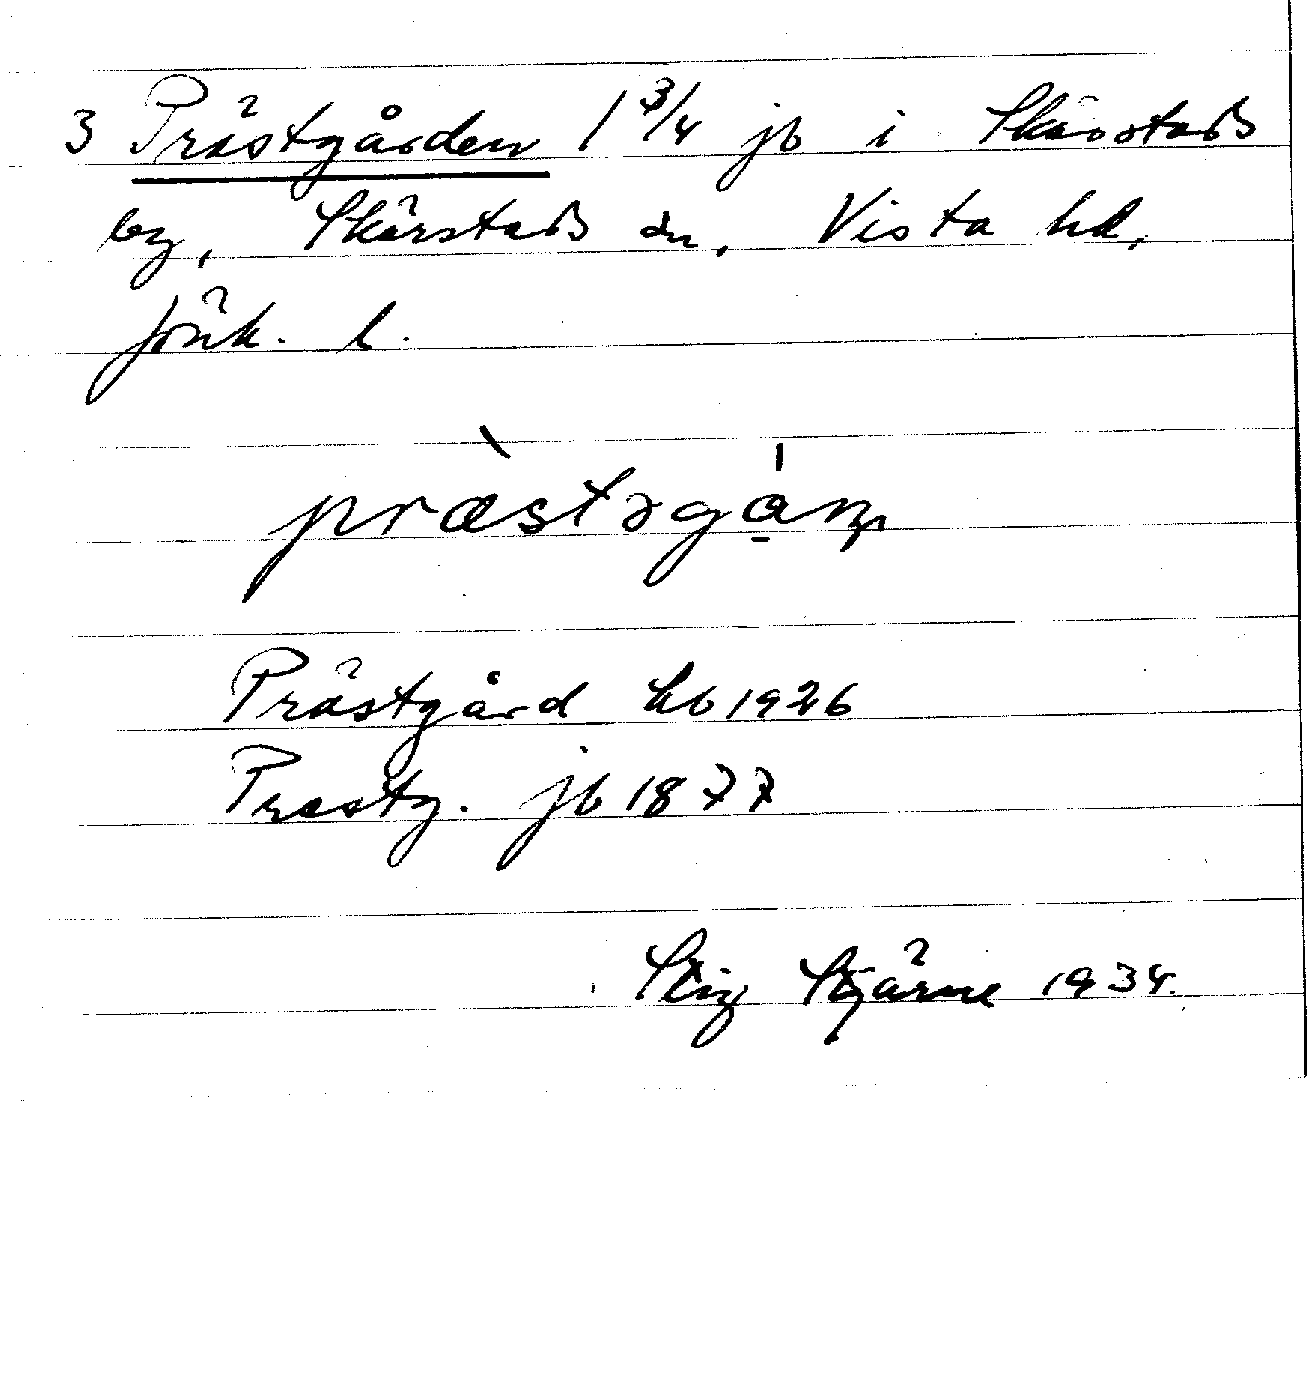 3 Prästgården 1 3/4 jb i Skärstads
by, Skärstads sn, Vista hd,
Jönk. l.
præstəgán
Prästgård kb 1926
Prestg. jb 1877
Stig Stjärne 1934.